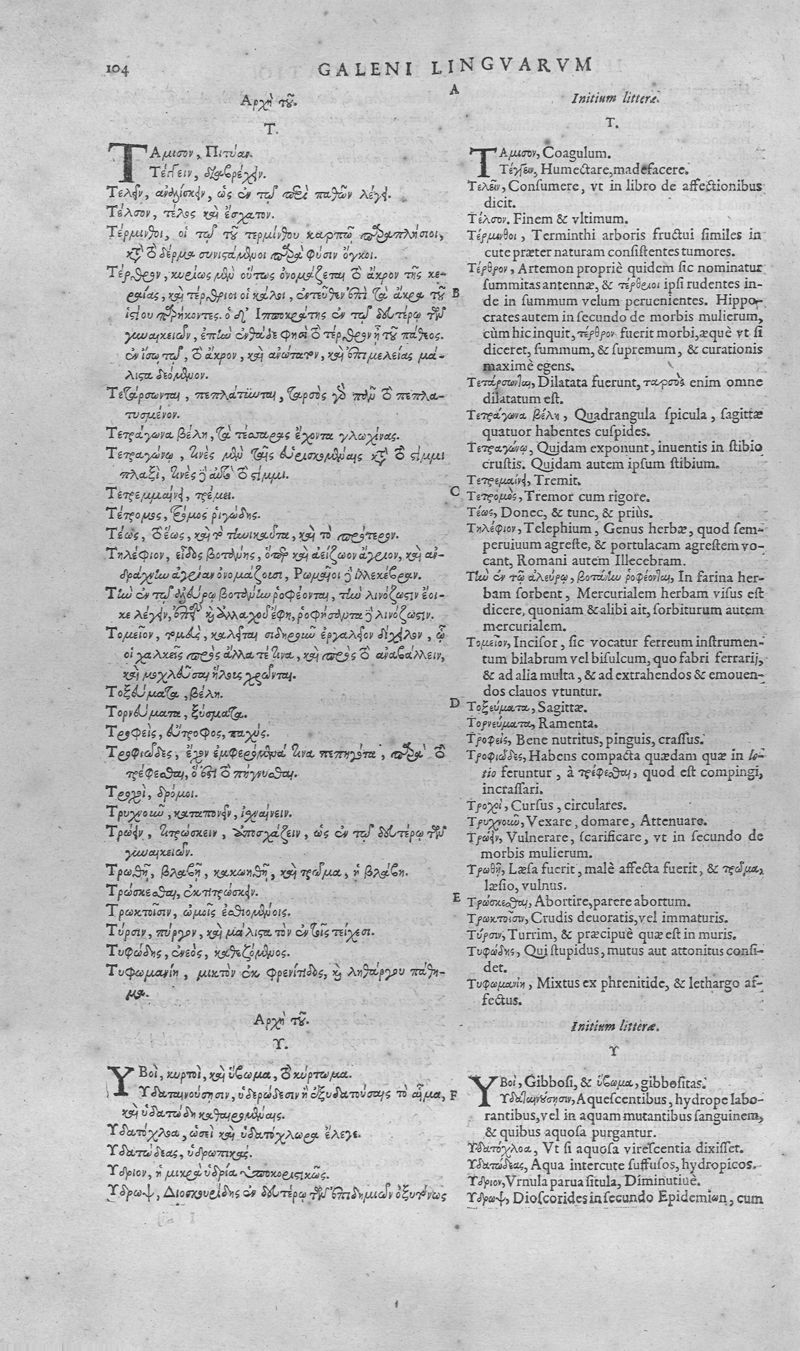 104
GALENI LINGVARVM
A
Αρχὴ τοῦ.
Τ.
ΤΑμισον, Πιτύαν.
Τέγγειν, διαβρέχειν.
Τελεῖν, ἀναλίσκειν, ὡς ἐν τῷ περὶ παθῶν λέγει.
Τέλσον, τέλος καὶ ἔσχατον.
Τέρμινθοι, οἱ τῷ τοῦ τερμίνθου καρπῷ παραπλήσιοι,
κατὰ τὸ δέρμα συνιστάμενοι παρὰ φύσιν ὄγκοι.
Τέρθρον, κυρίως μὲν οὕτως ὀνομάζεται τὸ ἄκρον τῆς κε-
ραίας, καὶ τέρθριοι οἱ κάλοι, ἐντεῦθεν ἐπὶ τὰ ἄκρα τοῦ
B
ἱστίου προσήκοντες. ὁ δ' Ἱπποκράτης ἐν τῷ δευτέρῳ τῶν
γυναικείων, ἐπὶν ἐνθάδε φησὶ τὸ τέρθρον ᾖ τοῦ πάθεος.
ἐν ἴσῳ τῷ, τὸ ἄκρον, καὶ ἀνώτατον, καὶ ἐπιμελείας μά-
λιστα δεόμενον.
Τετάρσωνται, πεπλάτυνται, ταρσὸς γὰρ πᾶν τὸ πεπλα-
τυσμένον.
Τετράγωνα βέλη, τὰ τέσσαρας ἔχοντα γλωχῖνας.
Τετραγώνῳ, τινὲς μὲν ταῖς εὑρισκομέναις κατὰ τὸ στίμμι
πλαξὶ, τινὲς δὲ αὐτὸ τὸ στίμμι.
Τετρεμμαίνει, τρέμει.
C
Τέτρομος, τρόμος ῥιγώδης.
Τέως, τὸ ἕως, καὶ τὸ τηνικαῦτα, καὶ τὸ πρότερον.
Τηλέφιον, εἶδος βοτάνης, ὅπερ καὶ ἀείζωον ἄγριον, καὶ ἀν-
δράχνην ἀγρίαν ὀνομάζουσι, Ρωμαῖοι δὲ ἰλλεκέβραν.
Τὴν ἐν τῷ ἀλεύρῳ βοτάνην ῥοφέονται, τὴν λινόζωσιν ἔοι-
κε λέγειν, ἐπεὶ καὶ ἀλλαχοῦ ἔφη, ῥοφήσαντα δὲ λινόζωσιν.
Τομεῖον, τομεὺς, καλεῖται σιδηροῦν ἐργαλεῖον δίχηλον, ᾧ
οἱ χαλκεῖς πρὸς ἄλλα τέ τινα, καὶ πρὸς τὸ ἀναβάλλειν,
καὶ μοχλεῦσαι ἥλους χρῶνται.
D
Τοξεύματα, βέλη.
Τορνεύματα, ξύσματα.
Τροφεὶς, εὔτροφος, παχύς.
Τροφιώδες, ἔχον ἐμφερόμενά τινα πεπηγότα, παρὰ τὸ
τρέφεσθαι, ὅ ἐστι τὸ πήγνυσθαι.
Τροχοὶ, δρόμοι.
Τρυχνοῦν, καταπονεῖν, ἰσχναίνειν.
Τρώειν, τιτρώσκειν, ἀποσχάζειν, ὡς ἐν τῷ δευτέρῳ τῶν
γυναικείων.
Τρωθῇ, βλαβῇ, κακωθῇ, καὶ τρῶμα, ἡ βλάβη.
Τρώσκεσθαι, ἐκτιτρώσκειν.
E
Τρωκτοῖσιν, ὠμοῖς ἐσθιομένοις.
Τύρσιν, πύργον, καὶ μάλιστα τὸν ἐν τοῖς τείχεσι.
Τυφώδης, ἐνεὸς, καθεζόμενος.
Τυφωμανίη, μικτὸν ἐκ φρενίτιδος, καὶ ληθάργου πάθη-
μα.
Αρχὴ τοῦ.
Υ.
ΥΒοὶ, κυρτοὶ, καὶ ὕβωμα, τὸ κύρτωμα.
Υδαταινούσησιν, ὑδερώδεσιν ἢ ἐξυδατούσαις τὸ αἷμα,
F
καὶ ὑδατώδη καθαιρομέναις.
Υδατόχλοα, ὡσεὶ καὶ ὑδατόχλωρα ἔλεγε.
Υδατώδεας, ὑδρωπικάς.
Υδριον, ἡ μικρὰ ὑδρία ὑποκοριστικῶς.
Υδρωψ, Διοσκουρίδης ἐν δευτέρῳ τῶν ἐπιδημιῶν ὀξυτόνως
Initium litteræ.
T.
TΑμισον, Coagulum.
Τέγγειν, Humectare, madefacere.
Τελεῖν, Consumere, vt in libro de affectionibus
dicit.
Τέλσον. Finem & vltimum.
Τέρμινθοι, Terminthi arboris fructui similes in
cute præter naturam consistentes tumores.
Τέρθρον, Artemon propriè quidem sic nominatur
summitas antennæ, & τέρθριοι ipsi rudentes in-
de in summum velum peruenientes. Hippo-
crates autem in secundo de morbis mulierum,
cùm hic inquit, τέρθρον fuerit morbi, æquè vt si
diceret, summum, & supremum, & curationis
maximè egens.
Τετάρσωνται, Dilatata fuerunt, ταρσὸς enim omne
dilatatum est.
Τετράγωνα βέλη, Quadrangula spicula, sagittæ
quatuor habentes cuspides.
Τετραγώνῳ, Quidam exponunt, inuentis in stibio
crustis. Quidam autem ipsum stibium.
Τετρεμαίνει, Tremit.
Τέτρομος, Tremor cum rigore.
Τέως, Donec, & tunc, & priùs.
Τηλέφιον, Telephium, Genus herbæ, quod sem-
peruiuum agreste, & portulacam agrestem vo-
cant, Romani autem Illecebram.
Τὴν ἐν τῷ ἀλεύρῳ, βοτάνην ῥοφέονται, In farina her-
bam sorbent, Mercurialem herbam visus est
dicere, quoniam & alibi ait, sorbiturum autem
mercurialem.
Τομεῖον, Incisor, sic vocatur ferreum instrumen-
tum bilabrum vel bisulcum, quo fabri ferrarij,
& ad alia multa, & ad extrahendos & emouen-
dos clauos vtuntur.
Τοξεύματα, Sagittæ.
Τορνεύματα, Ramenta.
Τροφεὶς, Bene nutritus, pinguis, crassus.
Τροφιώδες, Habens compacta quædam quæ in lo-
tio feruntur, à τρέφεσθαι, quod est compingi,
incrassari.
Τροχοὶ, Cursus, circulares.
Τρυχνοῦν, Vexare, domare, Attenuare.
Τρώειν, Vulnerare, scarificare, vt in secundo de
morbis mulierum.
Τρωθῇ, Læsa fuerit, malè affecta fuerit, & τρῶμα,
læsio, vulnus.
Τρώσκεσθαι, Abortire, parere abortum.
Τρωκτοῖσιν, Crudis deuoratis, vel immaturis.
Τύρσιν, Turrim, & præcipuè quæ est in muris.
Τυφώδης, Qui stupidus, mutus aut attonitus consi-
det.
Τυφωμανίη, Mixtus ex phrenitide, & lethargo af-
fectus.
Initium litteræ.
Υ
ΥΒοὶ, Gibbosi, & ὕβωμα, gibbositas.
Υδαταινούσησιν, Aquescentibus, hydrope labo-
rantibus, vel in aquam mutantibus sanguinem,
& quibus aquosa purgantur.
Υδατόχλοα, Vt si aquosa virescentia dixisset.
Υδατώδεας, Aqua intercute suffusos, hydropicos.
Υδριον, Vrnula parua situla, Diminutiuè.
Υδρωψ, Dioscorides in secundo Epidemion, cum